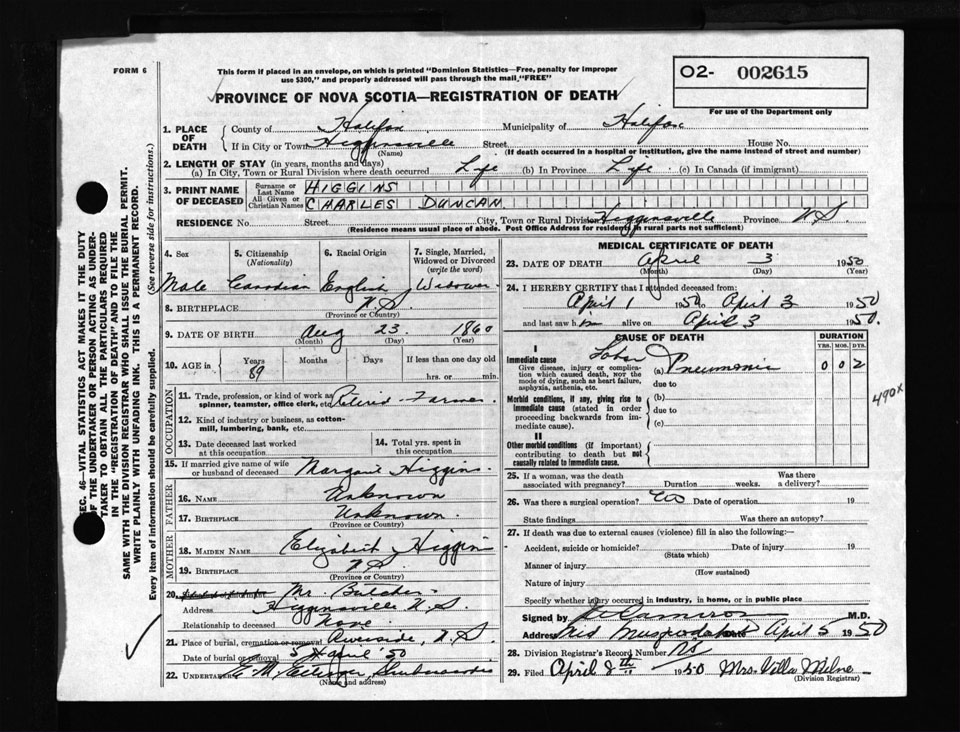 FORM 6
This form if placed in an envelope, on which is printed "Dominion Statistics—Free, penalty for improper
use $300," and properly addressed will pass through the mail, "FREE"
O2- 002615
PROVINCE OF NOVA SCOTIA—REGISTRATION OF DEATH
For use of the Department only
1. PLACE OF DEATH County of Halifax Municipality of Halifax
If in City or Town Higginsville Street House No.
(Name) (If death occurred in a hospital or institution, give the name instead of street and number)
2. LENGTH OF STAY (in years, months and days)
(a) In City, Town or Rural Division where death occurred Life (b) In Province Life (c) In Canada (if immigrant)
3. PRINT NAME OF DECEASED Surname or Last Name HIGGINS
All Given or Christian Names CHARLES DUNCAN
RESIDENCE No. Street City, Town or Rural Division Higginsville Province N.S
(Residence means usual place of abode. Post Office Address for residents in rural parts not sufficient)
4. Sex 5. Citizenship (Nationality) 6. Racial Origin 7. Single, Married, Widowed or Divorced (write the word)
Male Canadian English Widower
8. BIRTHPLACE N.S
(Province or Country)
9. DATE OF BIRTH Aug 23 1860
(Month) (Day) (Year)
10. AGE in Years 89 Months Days If less than one day old
hrs. or min.
OCCUPATION
11. Trade, profession, or kind of work as spinner, teamster, office clerk, etc. Retired Farmer
12. Kind of industry or business, as cotton-mill, lumbering, bank, etc.
13. Date deceased last worked at this occupation 14. Total yrs. spent in this occupation
15. If married give name of wife or husband of deceased Higgins
FATHER
16. NAME Unknown
17. BIRTHPLACE Unknown
(Province or Country)
MOTHER
18. MAIDEN NAME Elizabeth Higgins
19. BIRTHPLACE N.S.
(Province or Country)
20. Mr. Butcher
Address Higginsville N.S.
Relationship to deceased None
21. Place of burial, cremation or removal Riverside, N.S
Date of burial or removal 5 April '50
22. UNDERTAKER E. M.
(Name and address)
MEDICAL CERTIFICATE OF DEATH
23. DATE OF DEATH April 3 1950
(Month) (Day) (Year)
24. I HEREBY CERTIFY that I attended deceased from:
April 1 1950 to April 3 1950
and last saw him alive on April 3 1950.
CAUSE OF DEATH DURATION
YRS. MOS. DYS.
I
Immediate cause Lobar (a) Pneumonia 0 0 2
Give disease, injury or complication which caused death, not the mode of dying, such as heart failure, asphyxia, asthenia, etc. due to
490X
Morbid conditions, if any, giving rise to immediate cause (stated in order proceeding backwards from immediate cause). (b)
due to
(c)
II
Other morbid conditions (if important) contributing to death but not causally related to immediate cause.
25. If a woman, was the death associated with pregnancy? Duration weeks. Was there a delivery?
26. Was there a surgical operation? No Date of operation 19
State findings Was there an autopsy?
27. If death was due to external causes (violence) fill in also the following:—
Accident, suicide or homicide? Date of injury 19
(State which)
Manner of injury
(How sustained)
Nature of injury
Specify whether injury occurred in industry, in home, or in public place
Signed by M.D.
Address Mid Musquodoboit April 5 1950
28. Division Registrar's Record Number
29. Filed April 8th 1950 Mrs. Villa Milne
(Division Registrar)
SEC. 46—VITAL STATISTICS ACT MAKES IT THE DUTY
OF THE UNDERTAKER OR PERSON ACTING AS UNDER-
TAKER TO OBTAIN ALL THE PARTICULARS REQUIRED
IN THE "REGISTRATION OF DEATH" AND TO FILE THE
SAME WITH THE DIVISION REGISTRAR WHO SHALL ISSUE THE BURIAL PERMIT.
WRITE PLAINLY WITH UNFADING INK. THIS IS A PERMANENT RECORD.
Every item of information should be carefully supplied. (See reverse side for instructions.)